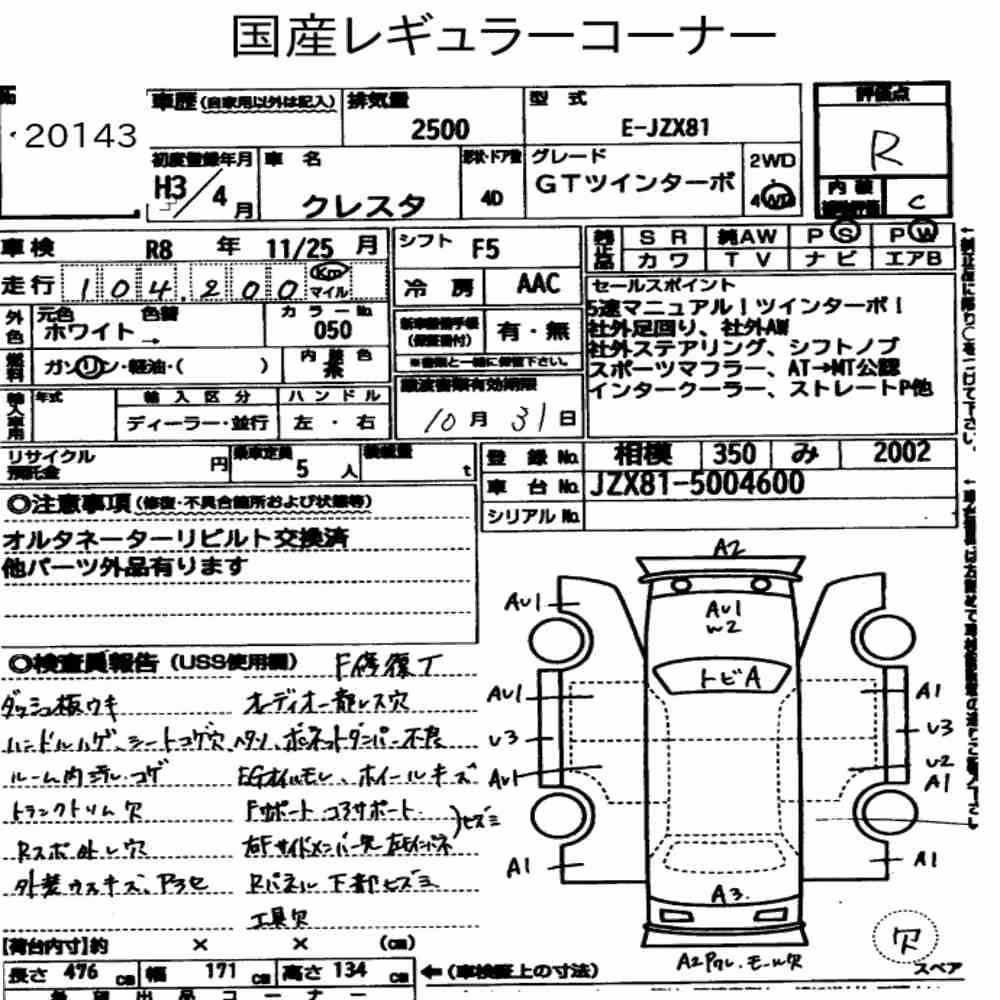 国産レギュラーコーナー
20143
車歴(自家用以外は記入)
排気量
2500
型 式
E-JZX81
評価点
R
初度登録年月
H3/4月
車 名
クレスタ
形状・ドア数
4D
グレード
GTツインターボ
2WD
4WD
内装
C
車検 R8 年 11/25 月
シフト F5
純正品
SR 純AW PS PW
カワ TV ナビ エアB
走行 104,200 Km マイル
冷房 AAC
セールスポイント
5速マニュアル!ツインターボ!
社外足回り、社外AW
社外ステアリング、シフトノブ
スポーツマフラー、AT→MT公認
インタークーラー、ストレートP他
外色 元色 ホワイト 色替 →
カラーNo. 050
有・無
(保証書付)
燃料 ガソリン・軽油・( )
内装色
譲渡書類有効期限
10月31日
輸入車用 年式
輸入区分
ディーラー・並行
ハンドル
左・右
リサイクル預託金 円
乗車定員 5人
積載量 t
登録No. 相模 350 み 2002
車台No. JZX81-5004600
シリアルNo.
◎注意事項(修復・不具合箇所および状態等)
オルタネーターリビルト交換済
他パーツ外品有ります
◎検査員報告(USS使用欄) F修復丁
ダッシュ板ウキ オーディオ一部レス穴
ハンドルハゲ、シートコゲ穴 ヘタリ、ボンネットダンパー不良
ルーム内汚レ・コゲ EGオイルモレ、ホイールキズ
トランクトリム欠 Fサポート コアサポート
Rスポ外し穴
外装ウスキズ、アラセ Rパネル下部ヒズミ
ヒズミ
工具欠
A2
AU1
AU1
W2
トビA
AU1
A1
U3
U3
AU1
U2
A1
A1
A1
A3
A2ワレ・モール欠
欠
スペア
【荷台内寸】約 × × (cm)
長さ 476 cm 幅 171 cm 高さ 134 cm
←(車検証上の寸法)
希望出品コーナー